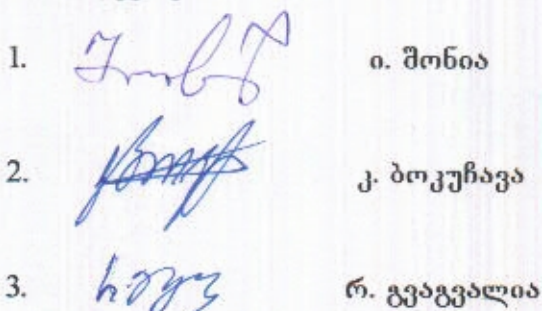 1. ი. შონია
2. კ. ბოკუჩავა
3. რ. გვაგვალია